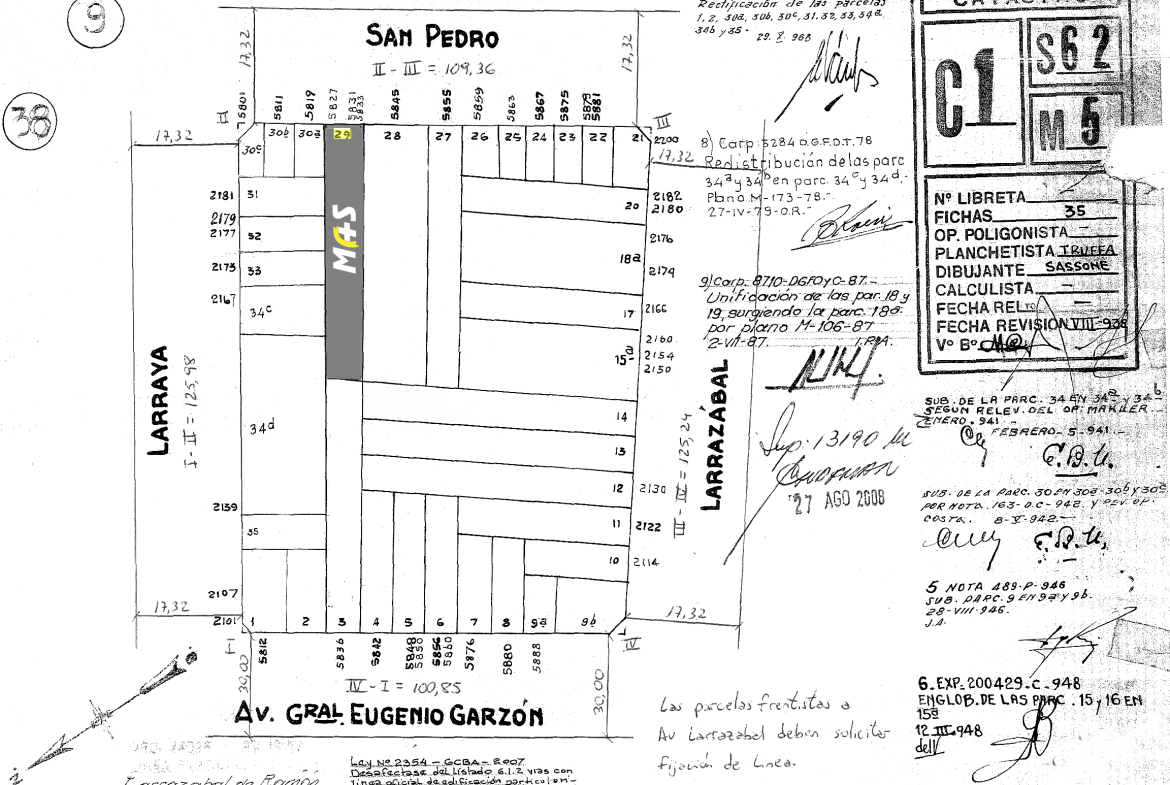 9
38
SAN PEDRO
II - III = 109,36
17,32
17,32
II
5801
5811
5819
5827
5831
5833
5845
5855
5859
5863
5867
5875
5879
5881
III
2200
17,32
17,32
30b
30a
29
28
27
26
25
24
23
22
21
30c
2181
31
2179
2177
32
2175
33
2167
34c
34d
2139
35
2107
2101
17,32
MAS
20
2182
2180
2176
18a
2174
17
2166
2160
15a
2154
2150
14
13
12
2130
11
2122
10
2114
17,32
LARRAYA
I - II = 125,98
LARRAZÁBAL
III - IV = 125,24
1
2
3
4
5
6
7
8
9a
9b
I
IV
5812
5836
5842
5848
5850
5856
5860
5876
5880
5888
30,00
30,00
IV - I = 100,85
Av. GRAL. EUGENIO GARZÓN
Ley Nº 2354 - GCBA - 2007
Desafectase del Listado 6.1.2 vias con
Las parcelas frentistas a
Av Larrazabal deben solicitar
fijación de Linea.
Rectificación de las parcelas
1, 2, 30a, 30b, 30c, 31, 32, 33, 34a
34b y 35.
29. X. 968
8) Carp. 5284 D.G.F.O.T. 78
Redistribución de las parc
34a y 34b en parc. 34c y 34d.-
Plano M-173-78.-
27-IV-79-O.R.-
9) Carp. 8710-DGFOyC-87.-
Unificación de las par. 18 y
19, surgiendo la parc. 18a
por plano M-106-87
2-VII-87.
Sup. 13190
27 AGO 2008
C1
S62
M5
Nº LIBRETA
FICHAS 35
OP. POLIGONISTA -
PLANCHETISTA TRUFFA
DIBUJANTE SASSONE
CALCULISTA -
FECHA REL. -
FECHA REVISION VIII-938
Vº Bº
SUB. DE LA PARC. 34 EN 34a y 34b
SEGUN RELEV. DEL OP. MAHLER
ENERO. 941.-
FEBRERO-5-941.-
SUB. DE LA PARC. 30 EN 30a-30b y 30c
POR NOTA. 163-O.C-942. Y REV. OP.
COSTA. 8-V-942.-
5 NOTA 489-P-946
SUB. PARC. 9 EN 9a y 9b.
28-VIII-946.
J.A.
6. EXP. 200429-C-948
ENGLOB. DE LAS PARC. 15 y 16 EN
15a
12 III-948